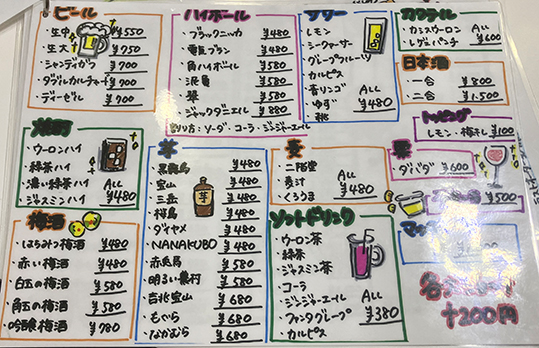 ビール
・生中 ¥550
・生大 ¥750
・シャンディガフ ¥700
・ダブルカルチャード ¥700
・ディーゼル ¥700
ハイボール
・ブラックニッカ ¥480
・電気ブラン ¥480
・角ハイボール ¥480
¥480
・翠 ¥480
・ジャックダニエル ¥880
割り方：ソーダ コーラ ジンジャーエール
サワー
・レモン
・シークァーサー
・グレープフルーツ
・カルピス
・青リンゴ ALL
・ゆず ¥480
・桃
カクテル
・カシスウーロン ALL
・レゲエパンチ ¥600
日本酒
・一合 ¥800
・二合 ¥1,500
トッピング
レモン・梅干し ¥100
焼酎
・ウーロンハイ
・緑茶ハイ
・濃い緑茶ハイ ALL
・ジャスミンハイ ¥480
芋
・黒霧島 ¥480
・宝山 ¥480
・三岳 ¥480
・桜島 ¥480
・ダイヤメ ¥480
・NANAKUBO ¥480
・赤霧島 ¥580
・明るい農村 ¥580
・吉兆宝山 ¥680
・もぐら ¥680
・なかむら ¥680
麦
・二階堂 ALL
・麦汁 ¥480
・くろうま
栗
・ダバダ ¥600
¥500
梅酒
・はちみつ梅酒 ¥480
・赤い梅酒 ¥480
・白玉の梅酒 ¥580
・角玉の梅酒 ¥580
・吟醸梅酒 ¥780
ソフトドリンク
・ウーロン茶
・緑茶
・ジャスミン茶
・コーラ
・ジンジャーエール ALL
・ファンタグレープ ¥380
・カルピス
+200円